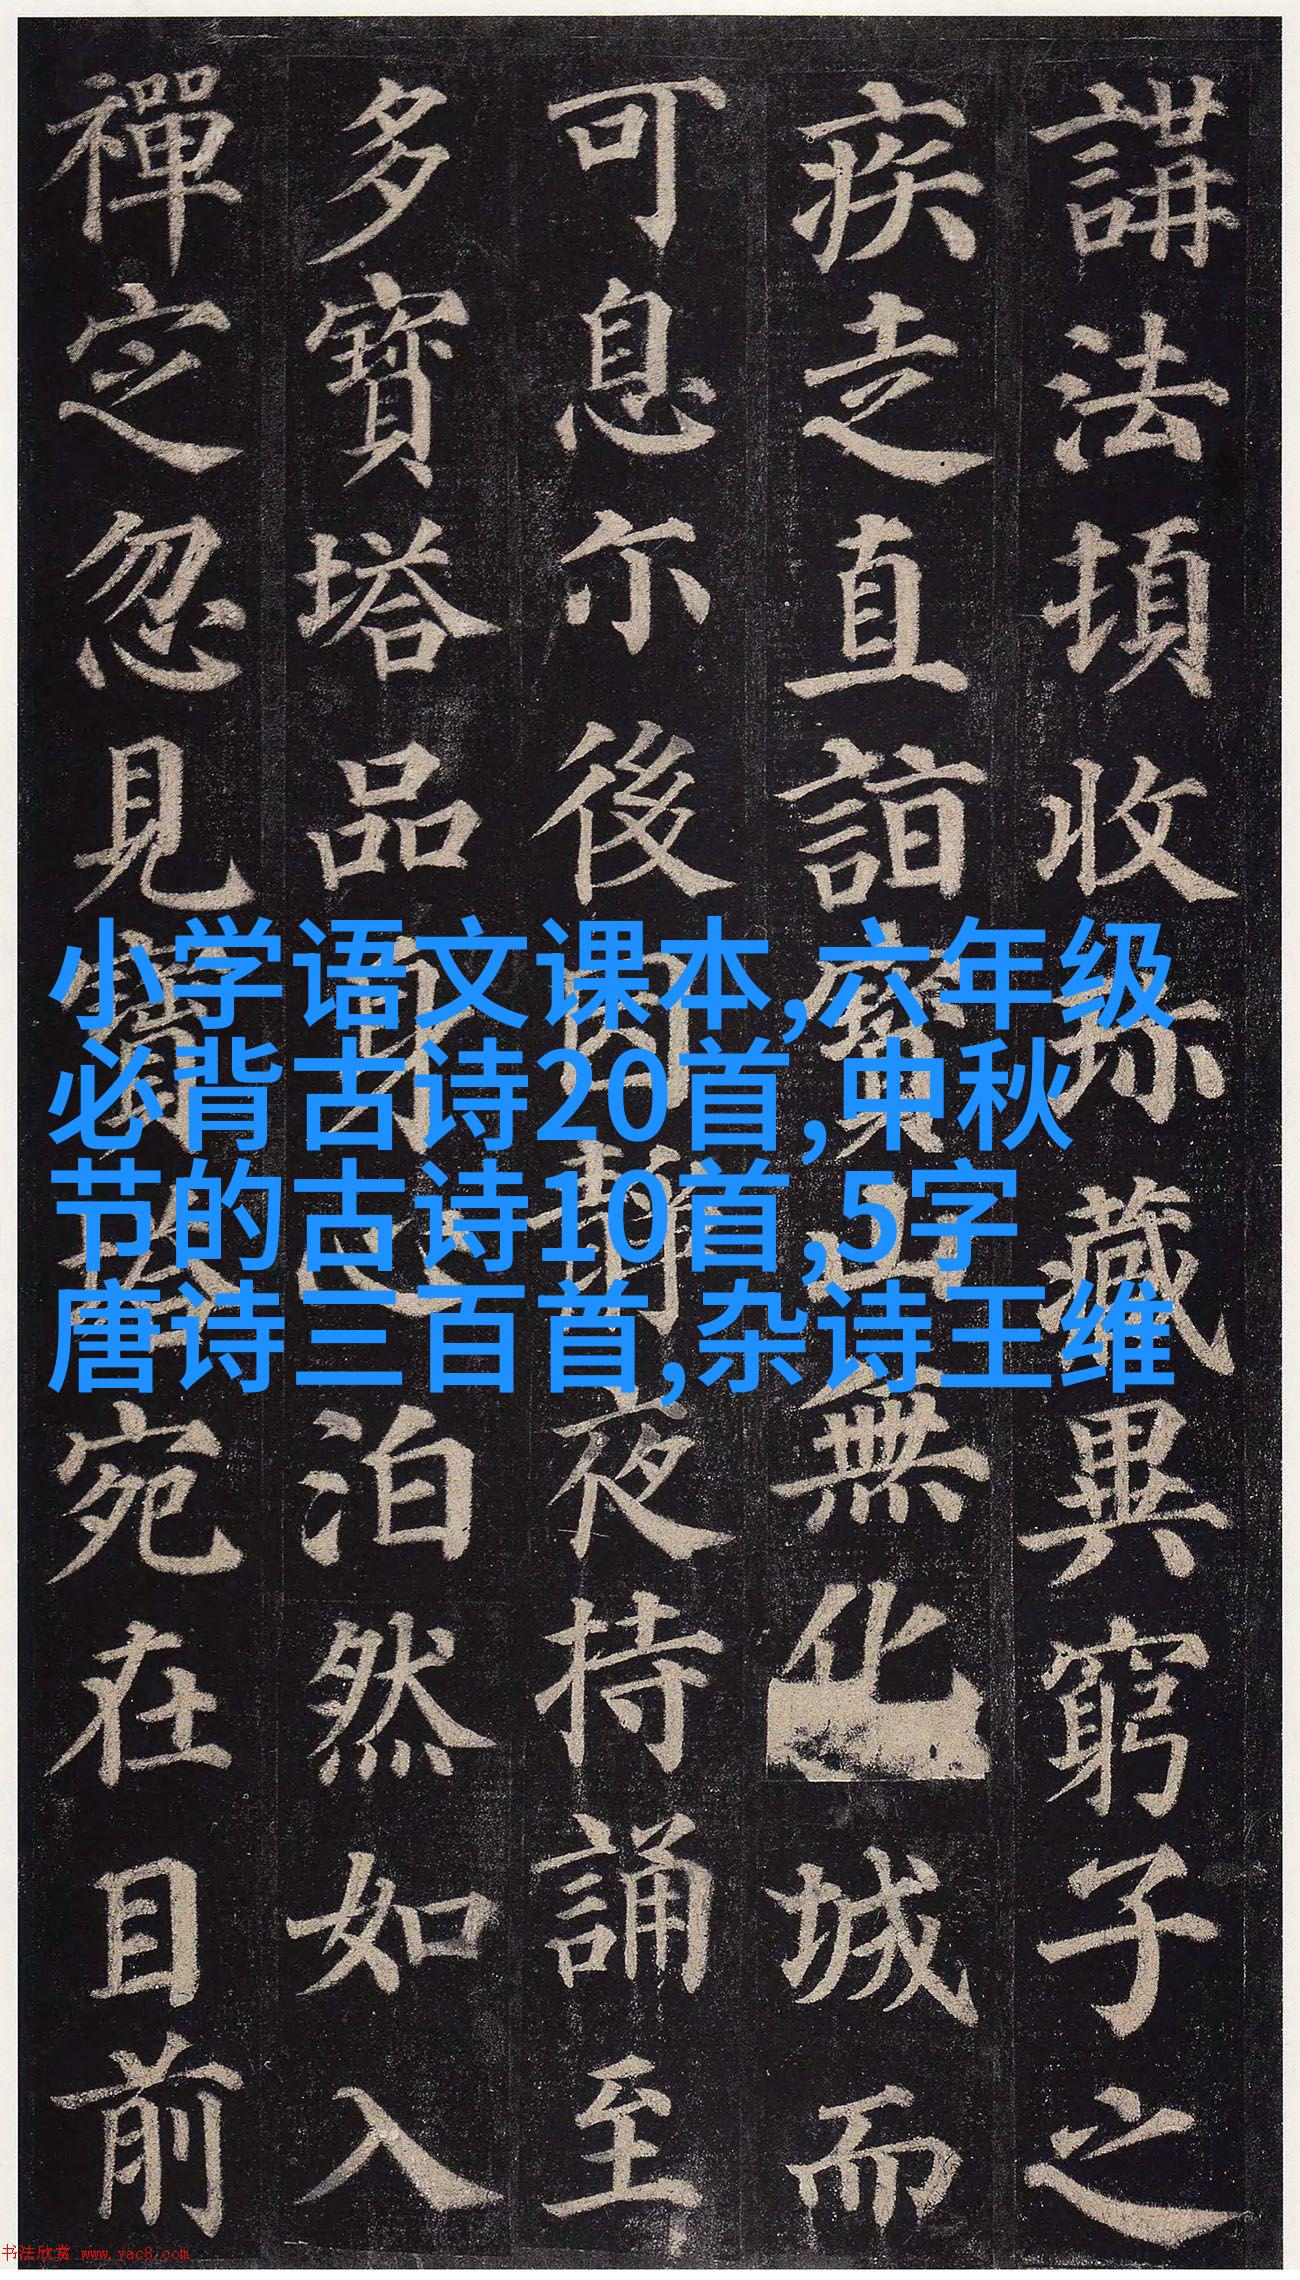 講法頓收珎藏異窮子之
疾走直詣寶山無化城而
可息尒後因靜夜持誦至
多寶塔品身心泊然如入
禪定忽見寶塔宛在目前
小学语文课本,六年级
必背古诗20首,中秋
节的古诗10首,5字
唐诗三百首,杂诗王维
书法欣赏 www.yac8.com